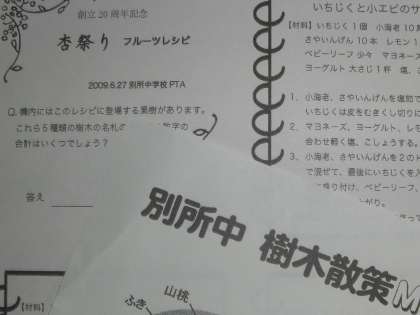 創立20周年記念
杏祭り フルーツレシピ
2009.6.27 別所中学校 PTA
Q. 構内にはこのレシピに登場する果樹があります。
これら5種類の樹木の名札の 数字の
合計はいくつでしょう?
答え
【材料】
いちじくと小エビのサ
【材料】いちじく1個 小海老10
さやいんげん10本 レモン1
ベビーリーフ少々 マヨネーズ
ヨーグルト大さじ1杯 塩、
1. 小海老、さやいんげんを塩茹で
いちじくは皮をむきくし切りに
2. マヨネーズ、ヨーグルト、レモ
合わせ軽く塩、こしょうする。
3. 小海老、さやいんげんを2のド
で混ぜて、最後にいちじくを入
り付け、ベビーリーフ
がり。
別所中 樹木散策M
山桃
ふき